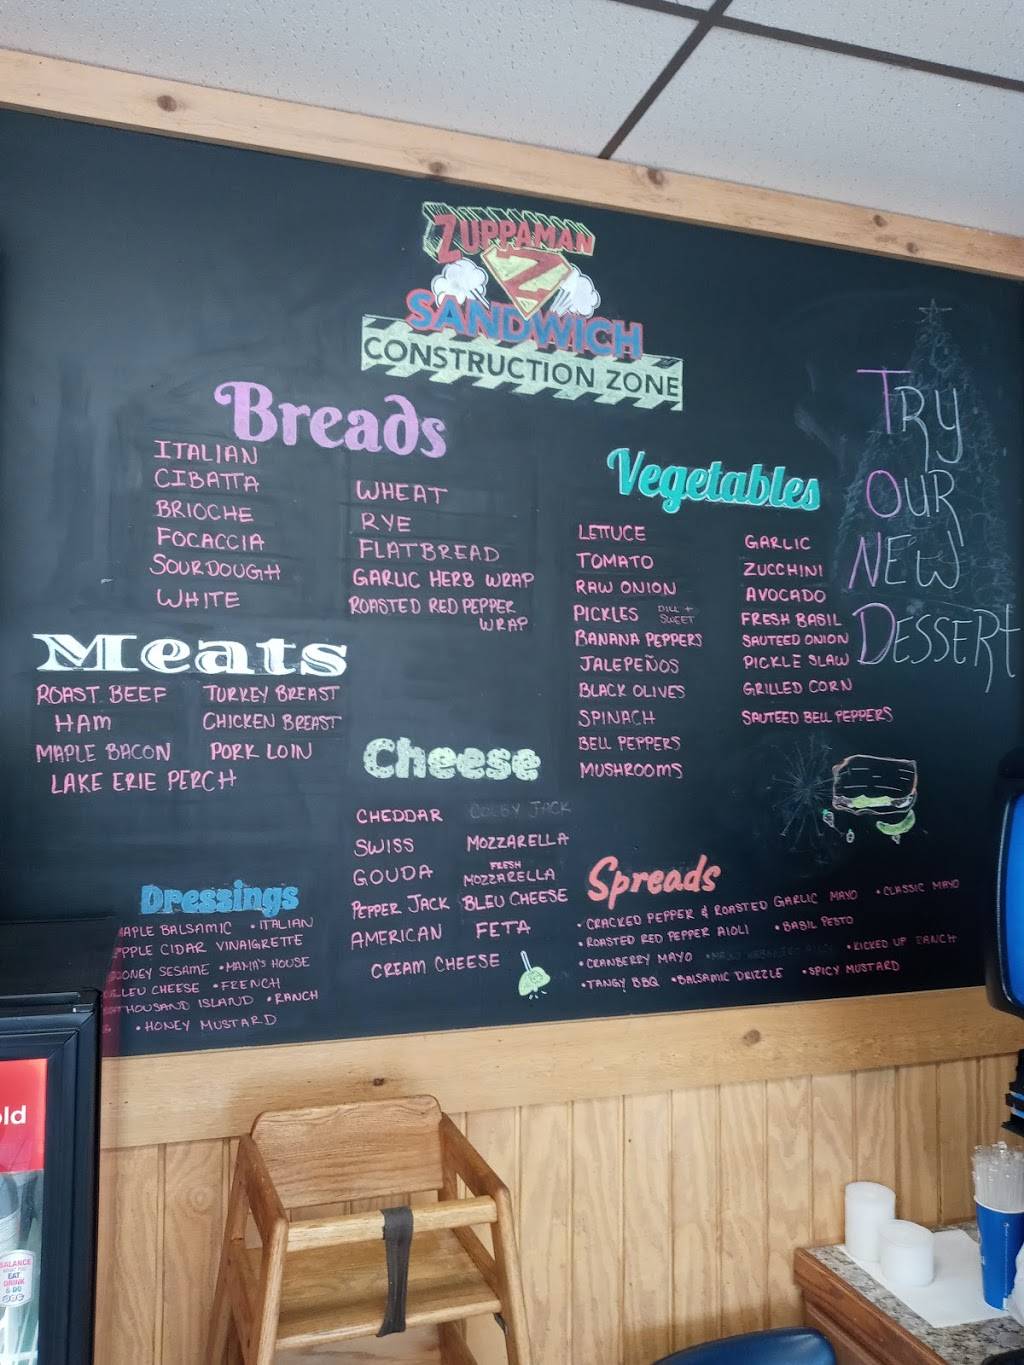 ZUPPAMAN
Z
SANDWICH
CONSTRUCTION ZONE
Breads
ITALIAN
CIBATTA
BRIOCHE
FOCACCIA
SOURDOUGH
WHITE
WHEAT
RYE
FLATBREAD
GARLIC HERB WRAP
ROASTED RED PEPPER
WRAP
Meats
ROAST BEEF
HAM
MAPLE BACON
LAKE ERIE PERCH
TURKEY BREAST
CHICKEN BREAST
PORK LOIN
Cheese
CHEDDAR
SWISS
GOUDA
PEPPER JACK
AMERICAN
CREAM CHEESE
COLBY JACK
MOZZARELLA
FRESH
MOZZARELLA
BLEU CHEESE
FETA
Vegetables
LETTUCE
TOMATO
RAW ONION
PICKLES DILL +
SWEET
BANANA PEPPERS
JALEPEÑOS
BLACK OLIVES
SPINACH
BELL PEPPERS
MUSHROOMS
GARLIC
ZUCCHINI
AVOCADO
FRESH BASIL
SAUTEED ONION
PICKLE SLAW
GRILLED CORN
SAUTEED BELL PEPPERS
TRY
OUR
NEW
DESSERT
Dressings
MAPLE BALSAMIC • ITALIAN
APPLE CIDAR VINAIGRETTE
HONEY SESAME • MAMA'S HOUSE
BLEU CHEESE • FRENCH
THOUSAND ISLAND • RANCH
• HONEY MUSTARD
Spreads
• CRACKED PEPPER & ROASTED GARLIC MAYO • CLASSIC MAYO
• ROASTED RED PEPPER AIOLI • BASIL PESTO
• CRANBERRY MAYO • KICKED UP RANCH
• TANGY BBQ • BALSAMIC DRIZZLE • SPICY MUSTARD
old
BALANCE
WHAT YOU
EAT
DRINK
& DO